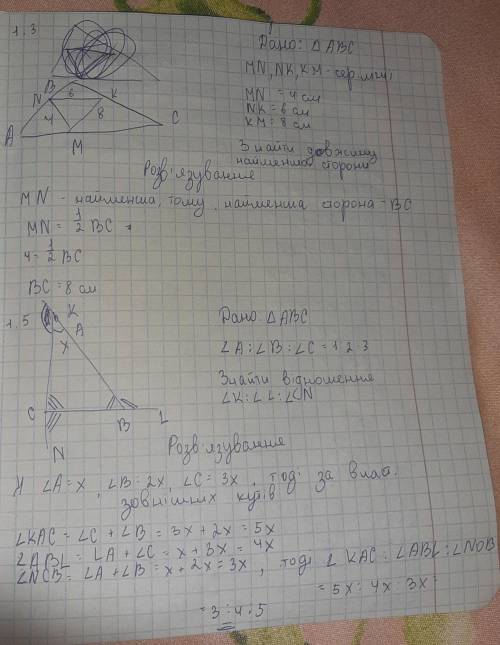 1.3
Дано: △ABC
MN, NK, KM - сер. лінії
MN = 4 см
NK = 6 см
KM = 8 см
Знайти довжину
найменшої сторони
B
N 6 K
4 8
A M C
Розв'язування
MN - найменша, тому найменша сторона - BC
MN = 1/2 BC
4 = 1/2 BC
BC = 8 см
1.5
K
A
X
C B L
N
Дано: △ABC
∠A : ∠B : ∠C = 1 : 2 : 3
Знайти відношення
∠K : ∠L : ∠N
Розв'язування
∠A = x, ∠B = 2x, ∠C = 3x, тоді за власт.
зовнішніх кутів
∠KAC = ∠C + ∠B = 3x + 2x = 5x
∠ABL = ∠A + ∠C = x + 3x = 4x
∠NCB = ∠A + ∠B = x + 2x = 3x, тоді ∠KAC : ∠ABL : ∠NCB
= 5x : 4x : 3x
= 3 : 4 : 5